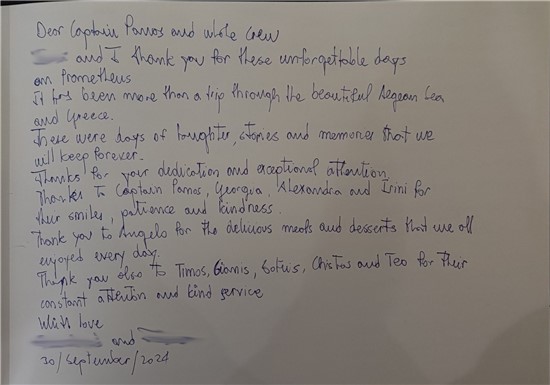 Dear Captain Panos and whole crew
and I thank you for these unforgettable days
on Prometheus
It has been more than a trip through the beautiful Aegean Sea
and Greece.
These were days of laughter, stories and memories that we
will keep forever.
Thanks for your dedication and exceptional attention
Thanks to Captain Panos, Georgia, Alexandra and Irini for
their smiles, patience and kindness.
Thank you to Angelo for the delicious meals and desserts that we all
enjoyed every day.
Thank you also to Timos, Giannis, Sotiris, Christos and Teo for their
constant attention and kind service
With love
and
30/September/2024